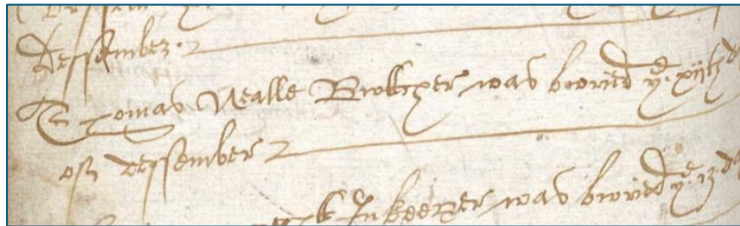 dessember
Thomas Nealle Butcher was buried ye xijth d
of dessember
Inkeeper was buried ye 13 d